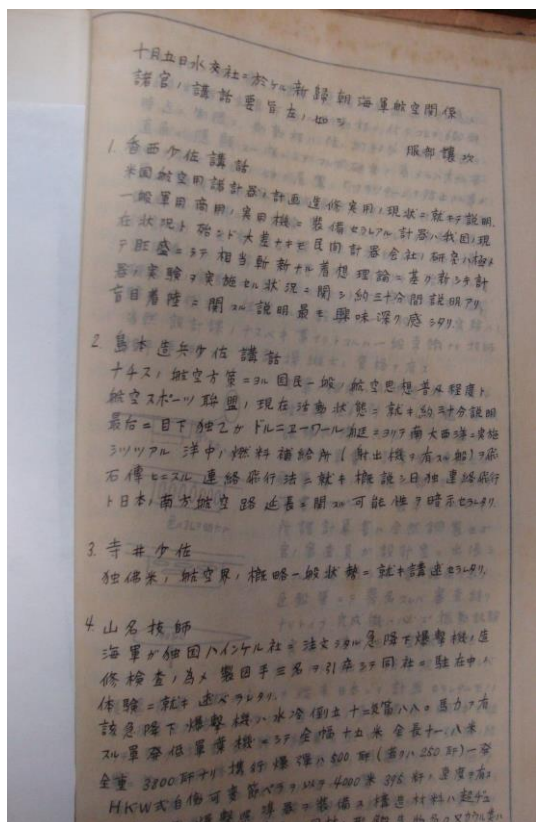 十月五日水交社ニ於ケル新歸朝海軍航空関係
諸官ノ講話要旨左ノ如シ
服部譲次
1. 香西少佐講話
米国航空用諸計器ノ計画造修実用ノ現状ニ就キテ説明
一般軍用商用ノ実用機ニ装備セラレアル計器ハ我国ノ現
在状況ト殆ンド大差ナキモ民間計器会社ノ研究ハ極メ
テ旺盛ニシテ相当斬新ナル着想理論ニ基ク新シキ計
器ノ実験ヲ実施セル状況ニ関シ約三十分間説明アリ
盲目着陸ニ関スル説明最モ興味深ク感ジタリ
2. 島本造兵少佐講話
ナチスノ航空方策ニヨル国民一般ノ航空思想普及程度ト
航空スポーツ联盟ノ現在活動状態ニ就キ約三十分説明
最后ニ目下独乙ガドルニエーワール艇ニヨリテ南大西洋ニ実施
シツツアル洋中ノ燃料補給所(射出機ヲ有スル船)ヲ飛
石傳ヒニスル連絡飛行法ニ就キ概説シ日独連絡飛行
ト日本ノ南方航空路延長ニ関スル可能性ヲ暗示セラレタリ
3. 寺井少佐
独佛米ノ航空界ノ概略一般状勢ニ就キ講述セラレタリ
4. 山名技師
海軍ガ独国ハインケル社ニ注文シタル急降下爆撃機ノ造
修検査ノ為メ製図手三名ヲ引率シテ同社ニ駐在中ノ
体験ニ就キ述ベラレタリ
該急降下爆撃機ハ水冷倒立十二気筒八八〇馬力ヲ有
スル単発低単葉機ニシテ全幅十五米全長十一.八米
全重 3800瓩ナリ 携行爆弾ハ500瓩(或ハ250瓩)一発
HKW式自働可変節ペラヲ以テ4000米 395粁ノ速度ヲ有ス